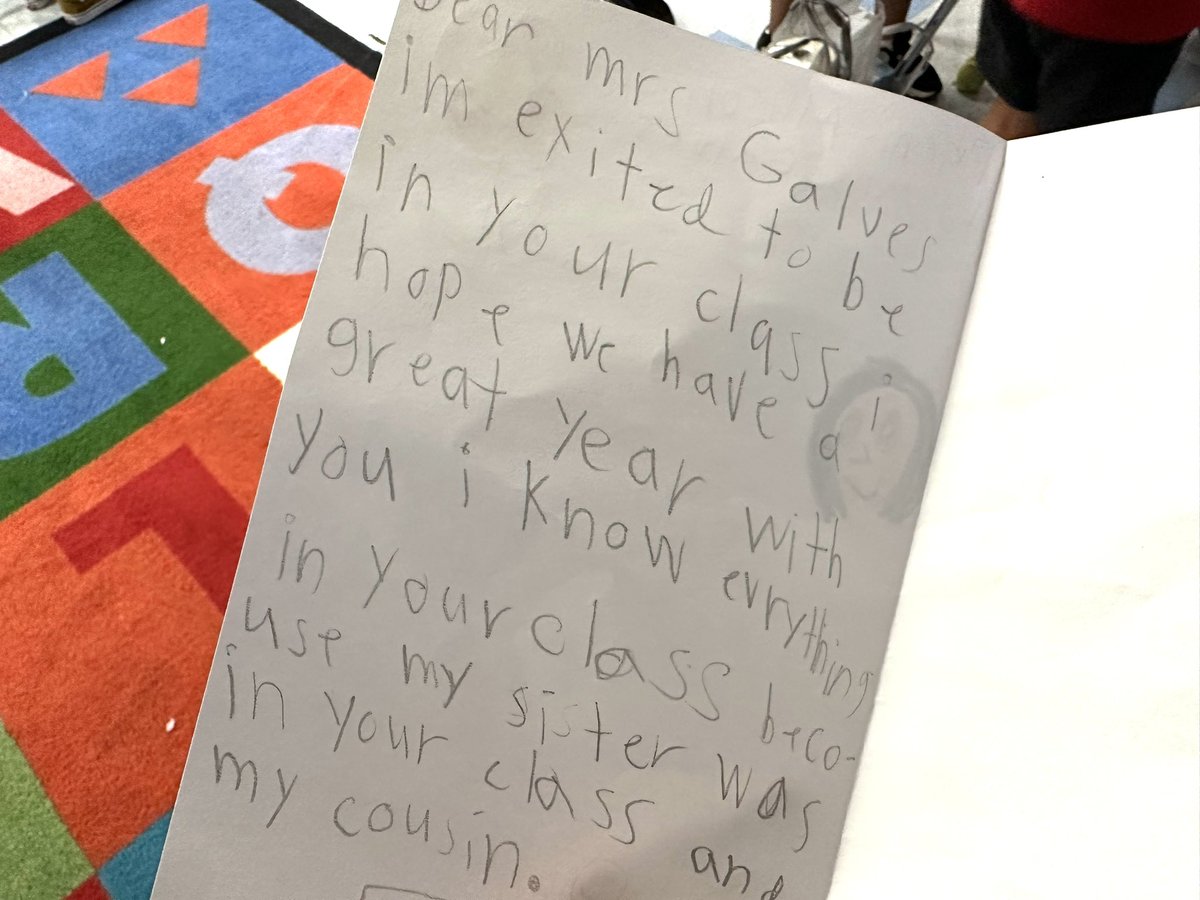 Dear mrs Galves
im exited to be
in your class i
hope we have a
great year with
you i know evrything
in your class beco-
use my sister was
in your class and
my cousin.